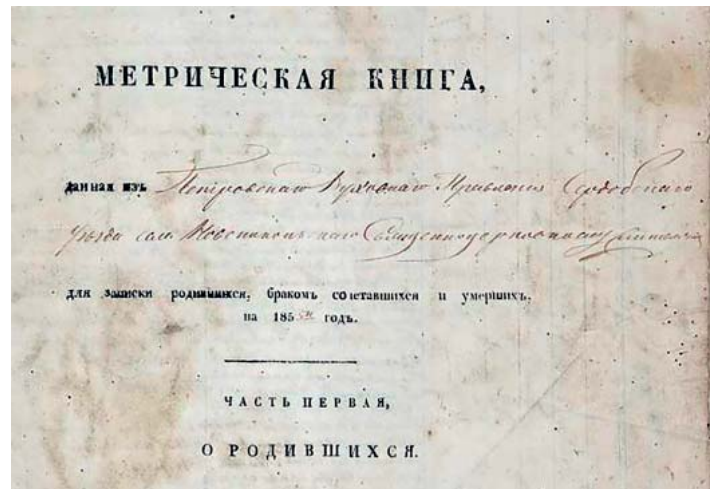 МЕТРИЧЕСКАЯ КНИГА,
данная изъ Петровскаго Духовнаго Правления Сердобскаго
уѣзда села Новоникольскаго Священноцерковнослужителямъ
для записки родившихся, бракомъ сочетавшихся и умершихъ,
на 185 годъ.
ЧАСТЬ ПЕРВАЯ,
О РОДИВШИХСЯ.